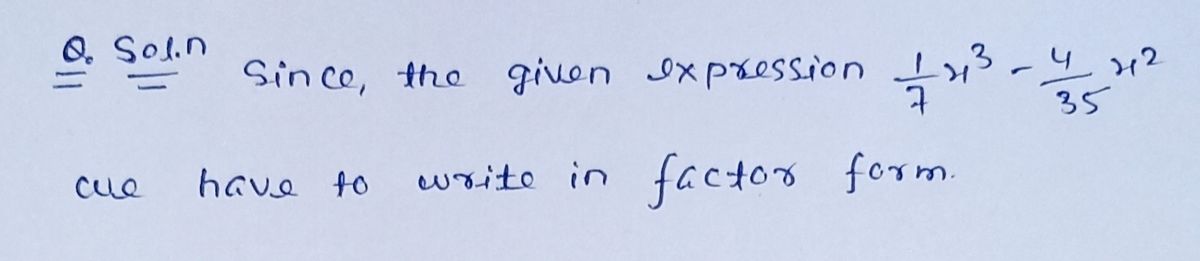 Q. Sol.n Since, the given expression 1/7 x³ - 4/35 x²
we have to write in factor form.